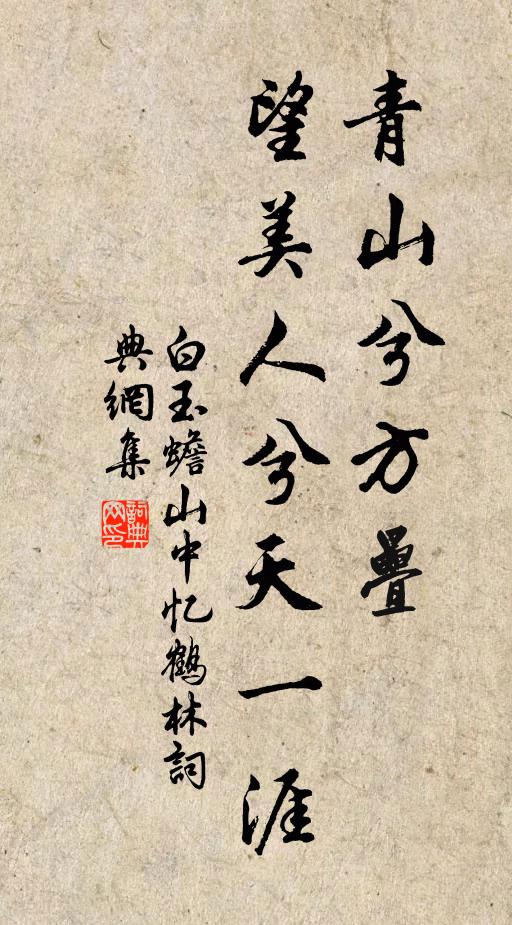 青山兮方疊
望美人兮天一涯
白玉蟾山中忆鶴林詞
典網集
詞典
网印